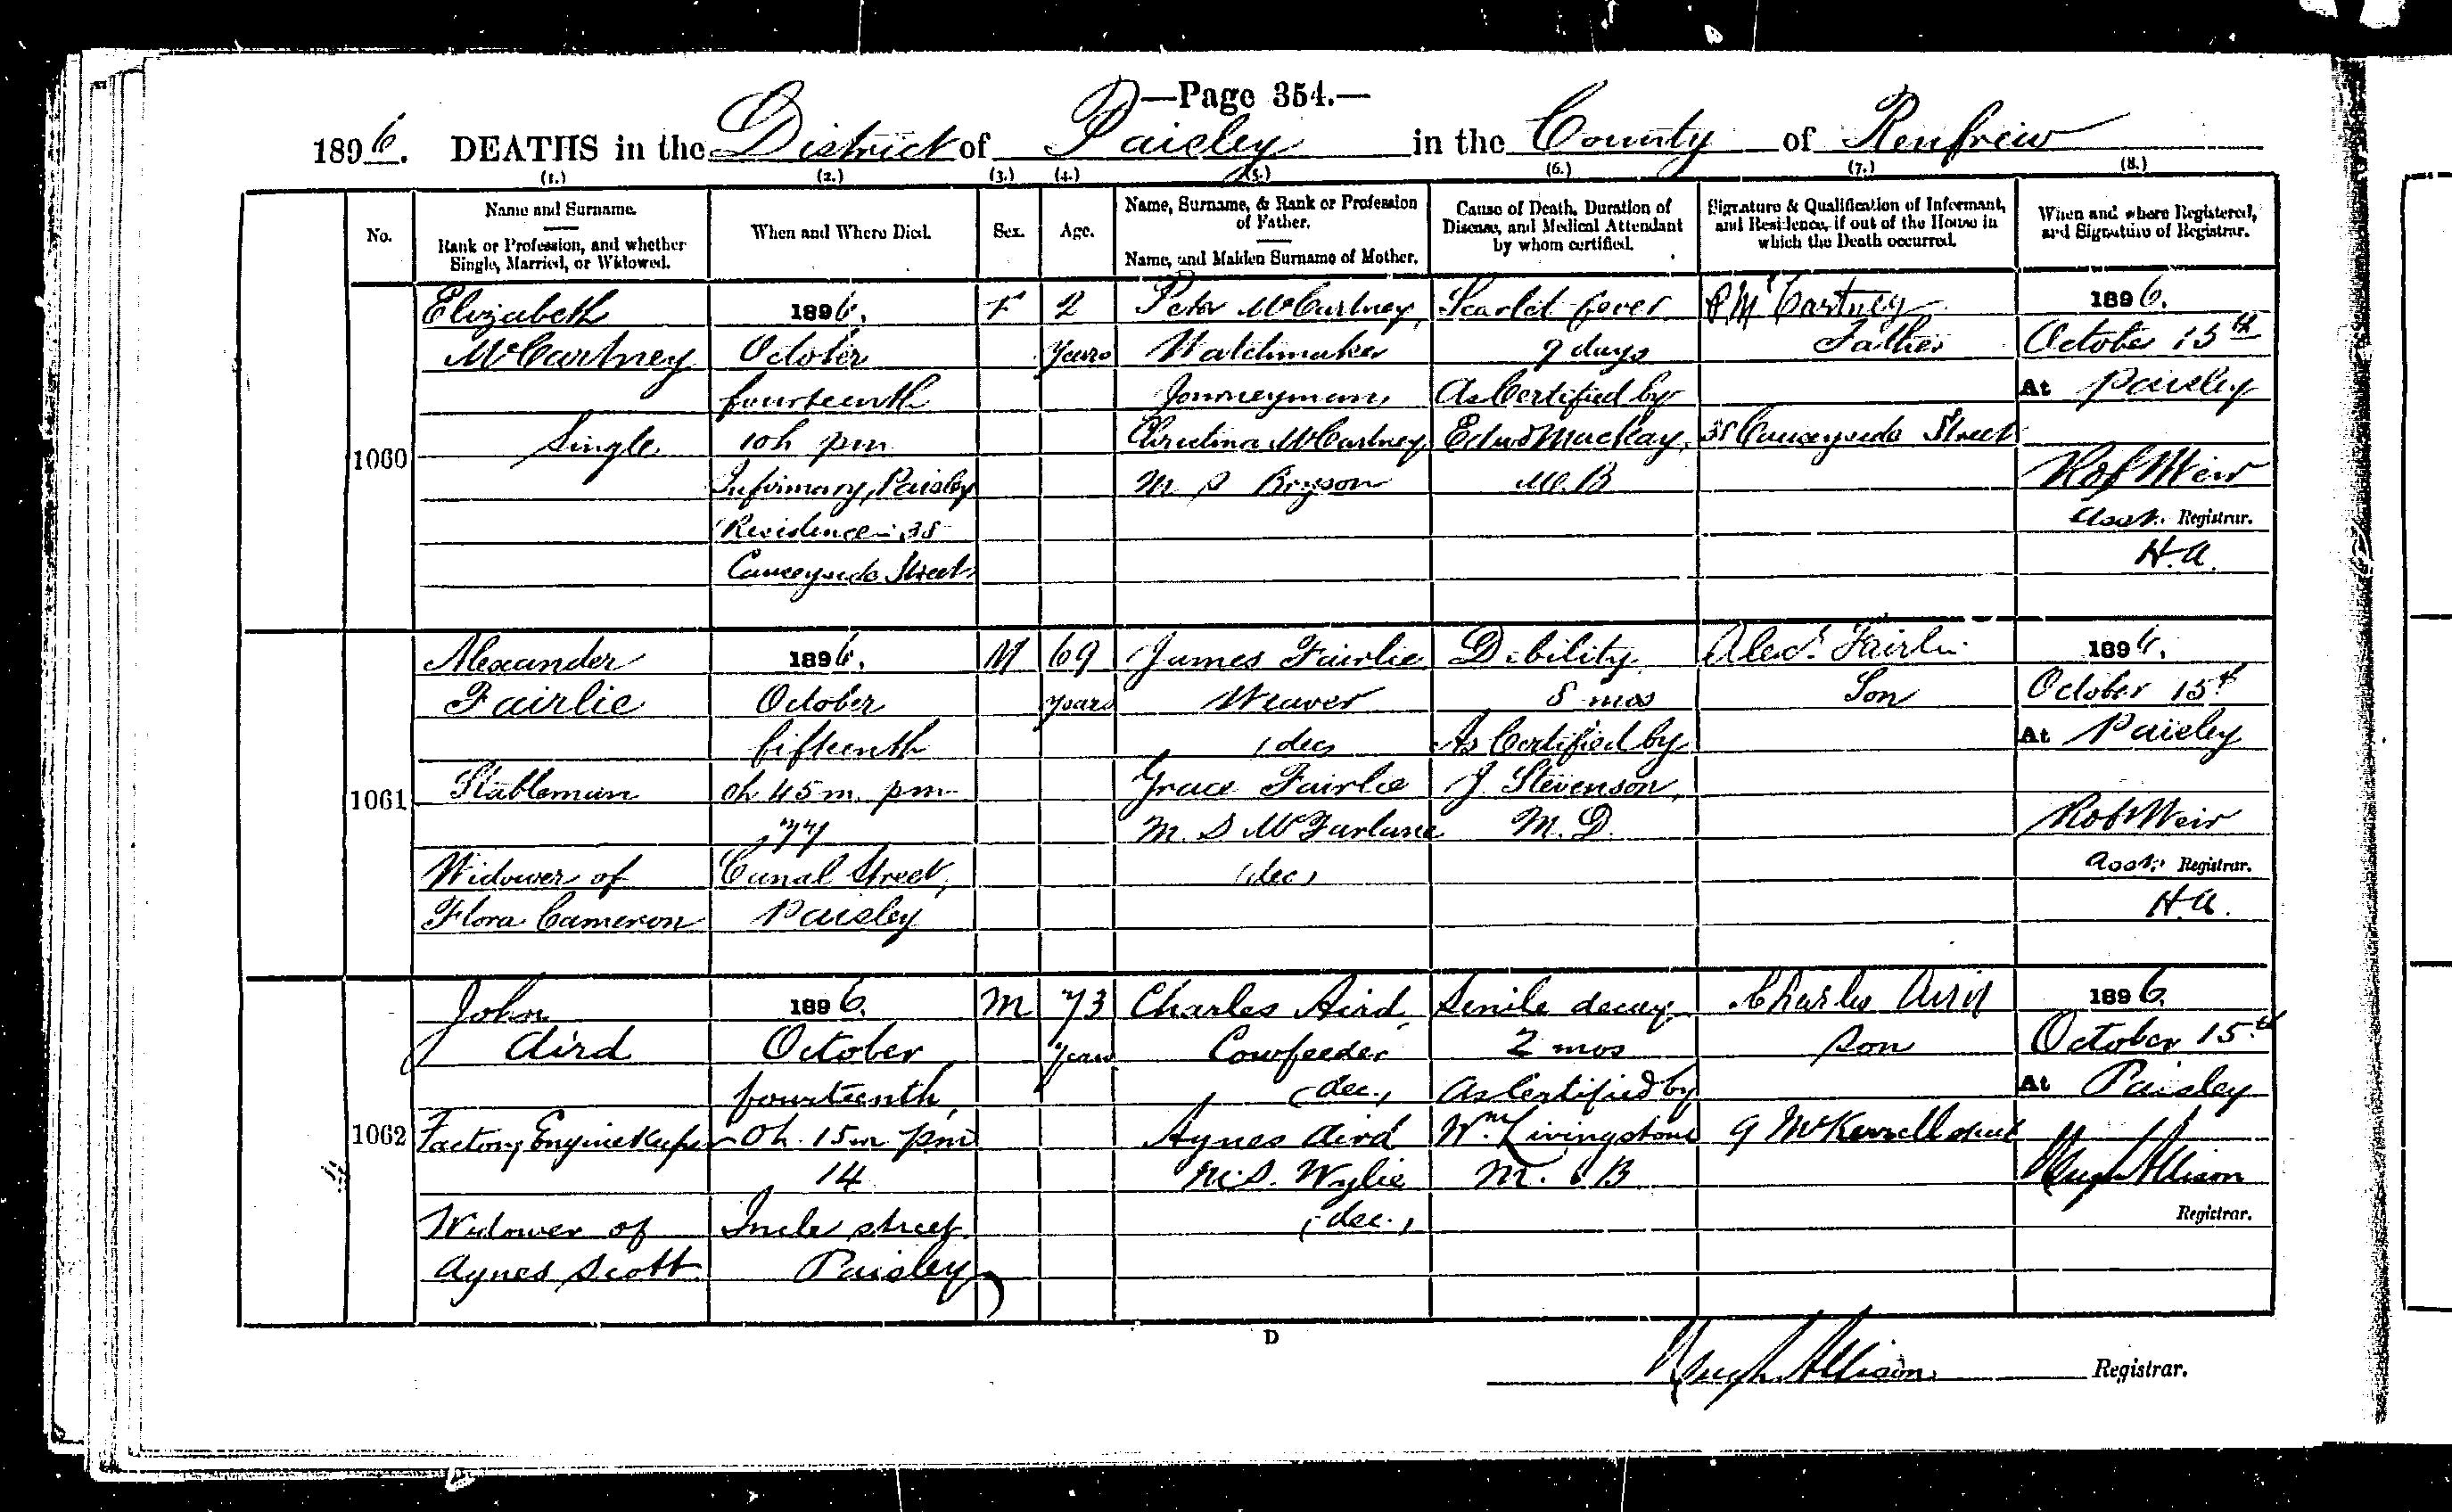 —Page 354.—
1896. DEATHS in the District of Paisley in the County of Renfrew
(1.) (2.) (3.) (4.) (5.) (6.) (7.) (8.)
No.
Name and Surname.
Rank or Profession, and whether
Single, Married, or Widowed.
When and Where Died.
Sex.
Age.
Name, Surname, & Rank or Profession
of Father.
Name, and Maiden Surname of Mother.
Cause of Death, Duration of
Disease, and Medical Attendant
by whom certified.
Signature & Qualification of Informant,
and Residence, if out of the House in
which the Death occurred.
When and where Registered,
and Signature of Registrar.
1060
Elizabeth
McCartney
Single
1896.
October
fourteenth
10h pm
Infirmary, Paisley
Residence 38
Causeyside Street
F
2
years
Peter McCartney
Watchmaker
Journeyman
Christina McCartney
M S Bryson
Scarlet fever
9 days
As Certified by
Edwd Mackay,
M.B
P McCartney
Father
38 Causeyside Street
1896.
October 15th
At Paisley
Robt Weir
Asst. Registrar.
H.A.
1061
Alexander
Fairlie
Stableman
Widower of
Flora Cameron
1896.
October
fifteenth
0h 45m pm
77
Canal Street,
Paisley
M
69
years
James Fairlie
Weaver
(dec)
Grace Fairlie
M.S McFarlane
(dec)
Debility
8 mos
As Certified by
J. Stevenson,
M.D.
Alexr Fairlie
Son
1896.
October 15th
At Paisley
Robt Weir
Asst. Registrar.
H.A.
1062
John
Aird
Factory Enginekeeper
Widower of
Agnes Scott
1896.
October
fourteenth,
0h. 15m pm
14
Incle street
Paisley
M
73
years
Charles Aird
Cowfeeder
(dec.)
Agnes Aird
M.S. Wylie
(dec.)
Senile decay
2 mos
As Certified by
Wm Livingstone
M.B
Charles Aird
son
9 McKerrell street
1896.
October 15th
At Paisley
Hugh Allison
Registrar.
D
Hugh Allison. Registrar.